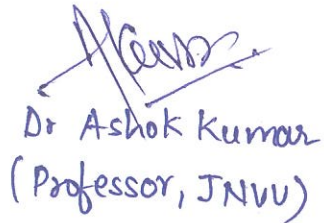 Dr Ashok Kumar
(Professor, JNVU)